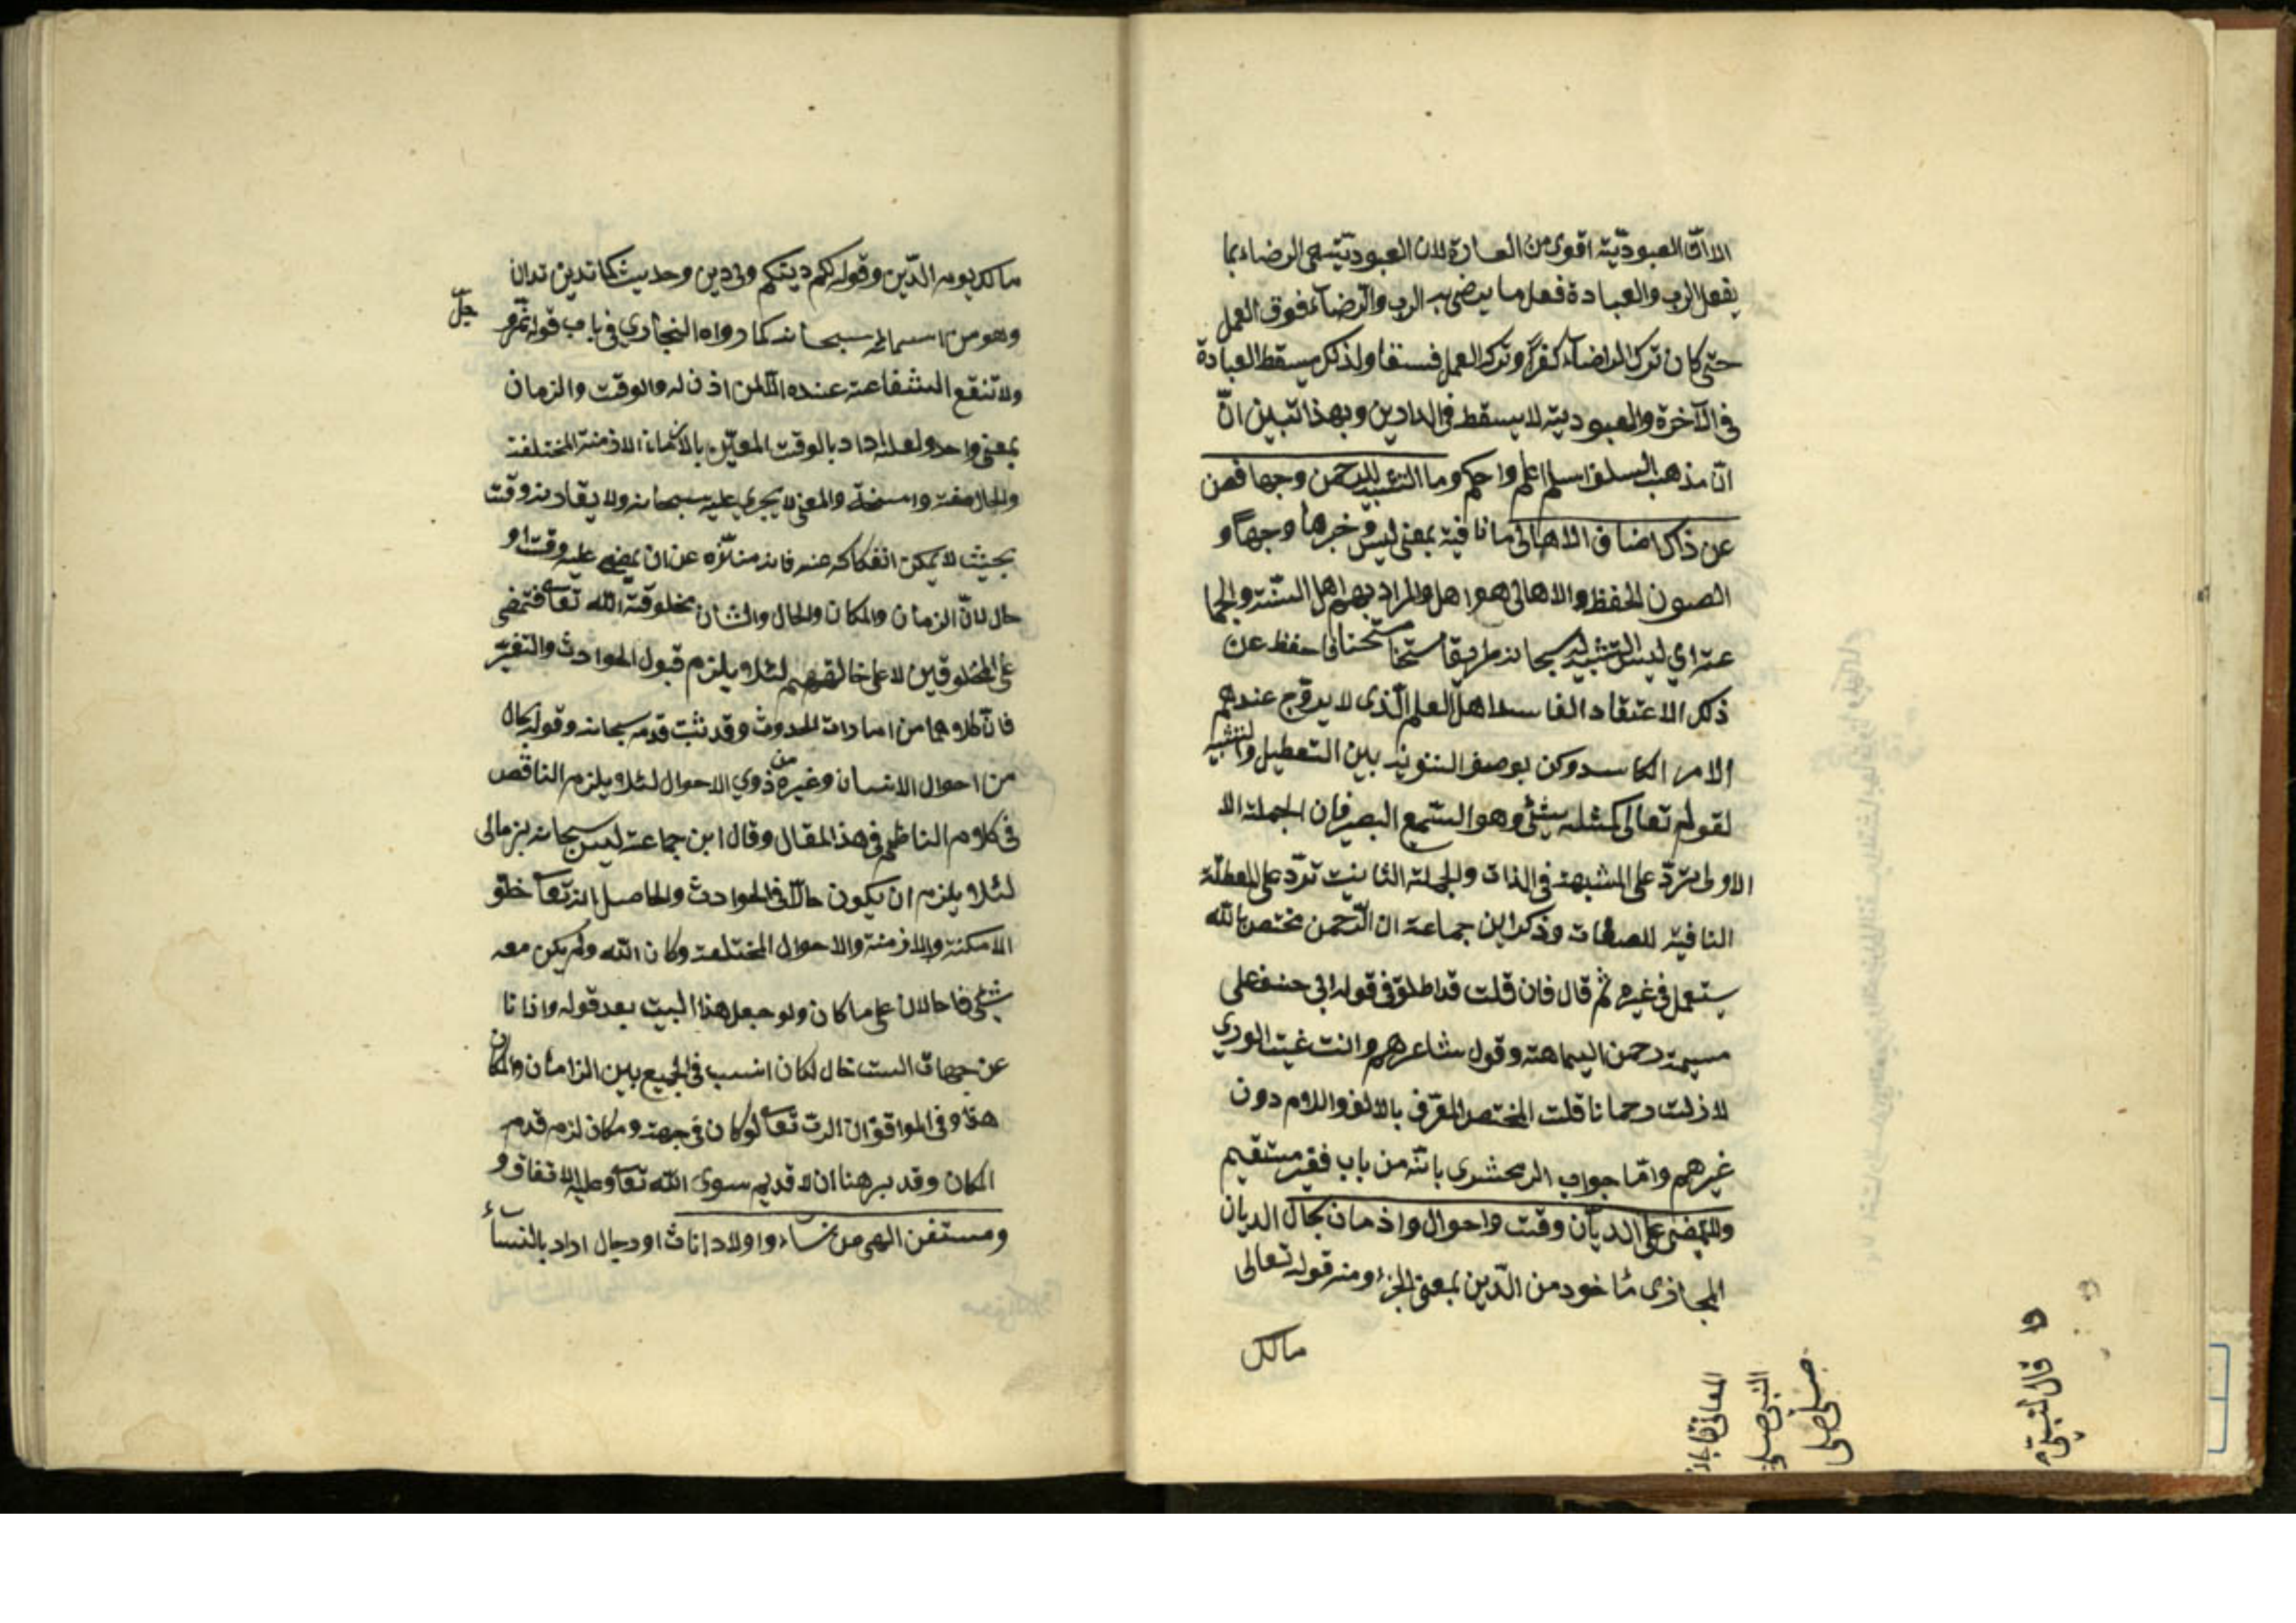 الا ان العبوديّة اقوى من العبادة لان العبوديّة هى الرضاء بما
يفعل الرب والعبادة فعل ما يرضى به الرب والرضاء فوق العمل
حتى كان ترك الرضاء كفرًا وترك العمل فسقا ولذلك يسقط العبادة
فى الآخرة والعبودية لا يسقط فى الدارين وبهذا تبين انّ
انّ مذهب السلف اسلم اعلم واحكم وما التشبيه للرحمن وجها فصن
عن ذاك اصناف الاهالى ما نافية بمعنى ليس وخبرها وجهًا و
الصون الحفظ والاهالى هو اهل والمراد بهم اهل السنّة والجما
عة اي ليس التشبيه له سبحانه طريقا مستحسنا فاحفظ عن
ذلك الاعتقاد الفاسد اهل العلم الّذى لا يروّج عندهم
الامر الكاسد وكن بوصف التنزيه بين التعطيل والتشبيه
لقوله تعالى كمثله شئ وهو السّميع البصير فان الجملة الا
الاولى تردّ على المشبهة فى الذات والجملة الثانيت تردّ على المعطلّة
النافية للصفات وذكر ابن جماعة ان الرّحمن مختص بالله
يستعمل فى غيره ثم قال فان قلت قد اطلق فى قوله ابى حنيفه على
مسيمة رحمن اليمامة وقول شاعرهم وانت غيث الوري
لا زلت رحمانا قلت المختص المعّرف بالالف واللام دون
غيرهم وامّا جواب الزمحشرى بانّه من باب
ولا يمضى على الديّان وقت واحوال واذمان بحال الديان
المجاذى مأخود من الدّين بمعنى الجزء ومنه قوله تعالى
مالك
مالك يوم الدّين وقوله لكم دينكم ولى دين وحديث كما تدين تدان
وهو من اسمائه سبحانه كما رواه البخاري فى باب قوله عزّ و
جلّ
ولا تنفع الشفاعة عنده الّا لمن اذن له والوقت والزمان
بمعنى واحد ولعله اراد بالوقت المعيّن بالازمان الازمنة المختلفة
والحال صفة والمعنى لا يجري عليه سبحانه ولا يقارنه وقت
بحيث لا يمكن انفكاكه عنه فانه منزّه عن ان يمضى عليه وقت او
حال لانّ الزمان والمكان والحال والشان مخلوقة الله تعا فتمضى
على المخلوقين لا على خالقهم لئلا يلزم قبول الحوادث والتغير
فانّ كلاهما من امارات الحدوث وقد ثبت قدمه سبحانه وقوله بحال
من احوال الانسان وغيره من ذوي الاحوال لئلا يلزم الناقص
فى كلام الناظم فى هذا المقال وقال ابن جماعة ليس سبحانه بزمانى
لئلا يلزم ان يكون حالّا فى الحوادث والحاصل انه تعا خلق
الامكنة والازمنة والاحوال المختلفة وكان الله ولم يكن معه
شئ فاحالان على ما كان ولو جعل هذا البيت بعد قوله وذاتا
عن جهات الست خال لكان انسب فى الجميع بين الزامان والمكان
هذا وفى المواقف ان الرب تعا لو كان فى جهة ومكان لزم قدم
المكان وقد برهنا ان لا قديم سوى الله تعا وعليه الاتفاق و
ومستغن الهى من نساء واولاد اناث او رجال اراد بالنسأ